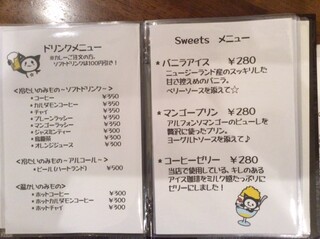 ドリンクメニュー
※カレーご注文の方、
ソフトドリンクは100円引き!
<冷たいのみもの~ソフトドリンク~>
・コーヒー ¥350
・カルダモンコーヒー ¥350
・チャイ ¥350
・プレーンラッシー ¥350
・マンゴーラッシー ¥350
・ジャスミンティー ¥300
・烏龍茶 ¥300
・オレンジジュース ¥300
<冷たいのみもの~アルコール~>
・ビール(ハートランド) ¥500
<温かいのみもの>
・ホットコーヒー ¥300
・ホットカルダモンコーヒー ¥300
・ホットチャイ ¥300
Sweets メニュー
* バニラアイス ¥280
ニュージーランド産のスッキリした
甘さ控えめのバニラ。
ベリーソースを添えて☆
* マンゴープリン ¥280
アルフォンソマンゴーのピューレを
贅沢に使ったプリン。
ヨーグルトソースを添えて♪
* コーヒーゼリー ¥280
当店で使用している、キレのある
アイス珈琲をミルク感たっぷりに
ゼリーにしました!